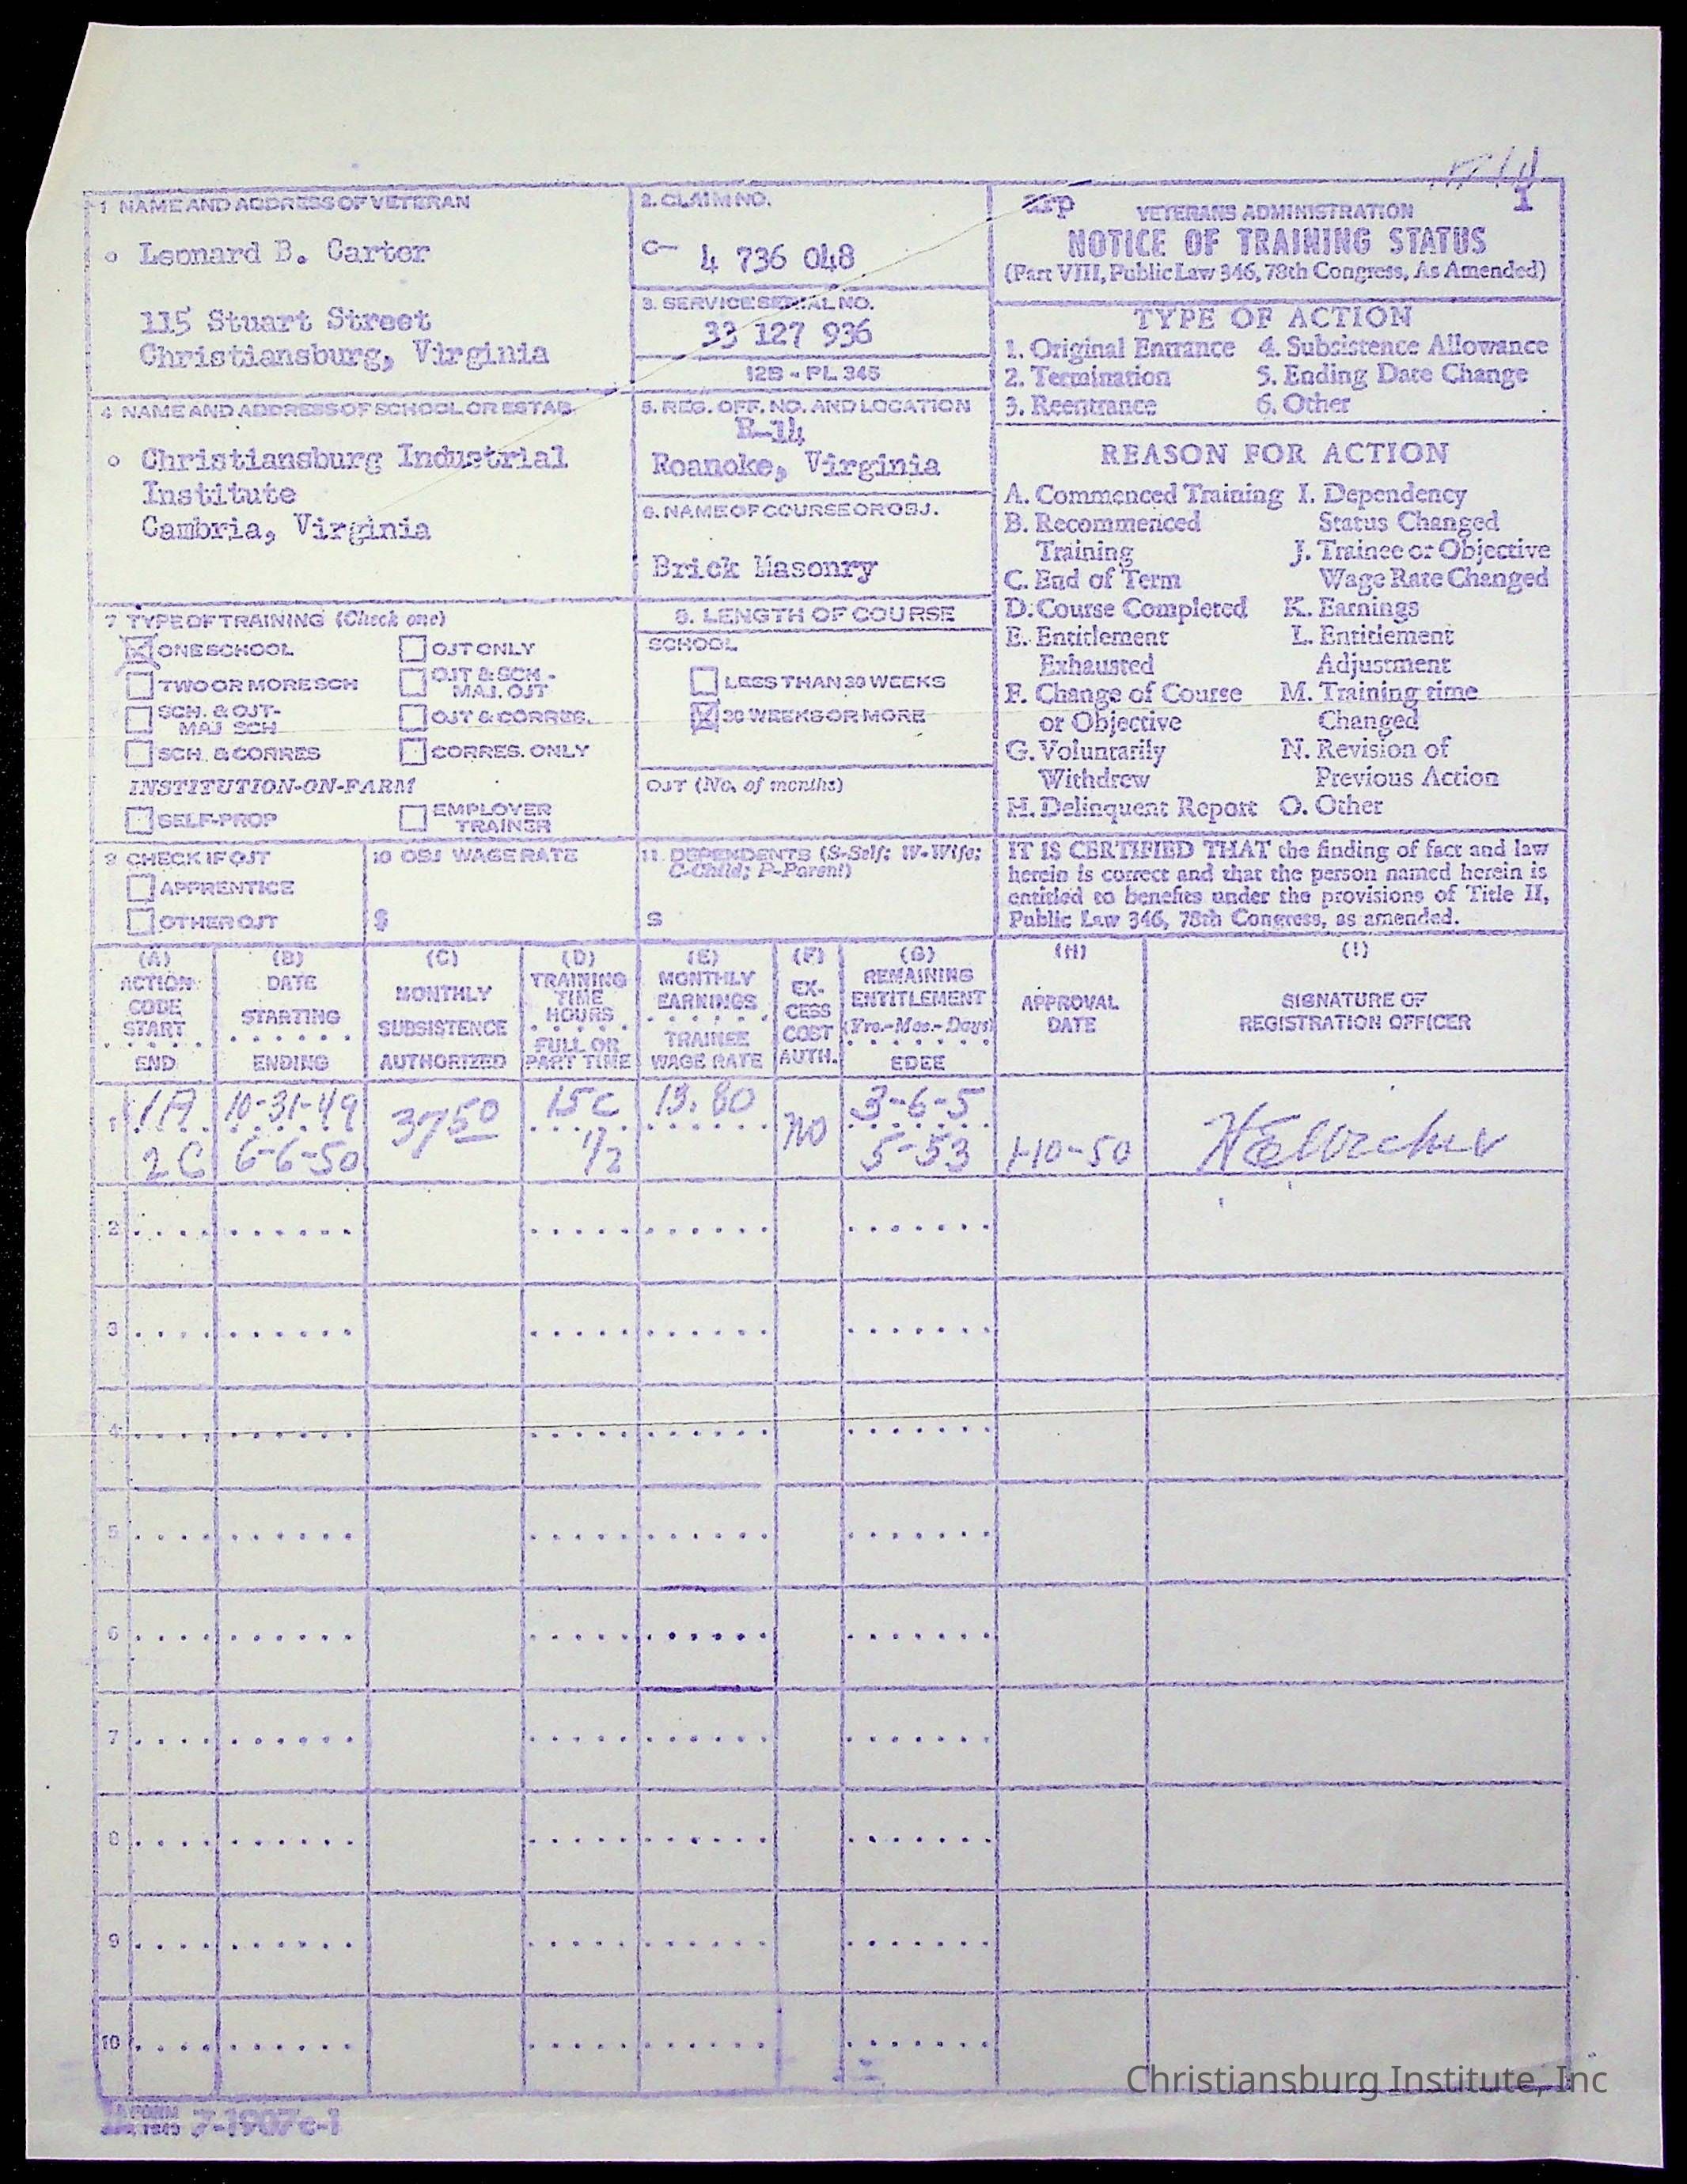 1 NAME AND ADDRESS OF VETERAN
Leonard B. Carter
115 Stuart Street
Christiansburg, Virginia
2. CLAIM NO.
C- 4 736 048
3. SERVICE SERIAL NO.
33 127 936
12B - PL 346
VETERANS ADMINISTRATION 1
NOTICE OF TRAINING STATUS
(Part VIII, Public Law 346, 78th Congress, As Amended)
TYPE OF ACTION
1. Original Entrance 4. Subsistence Allowance
2. Termination 5. Ending Date Change
3. Reentrance 6. Other
4 NAME AND ADDRESS OF SCHOOL OR ESTAB.
Christiansburg Industrial
Institute
Cambria, Virginia
5. REG. OFF. NO. AND LOCATION
R-14
Roanoke, Virginia
6. NAME OF COURSE OR OBJ.
Brick Masonry
REASON FOR ACTION
A. Commenced Training I. Dependency
B. Recommenced Status Changed
Training J. Trainee or Objective
C. End of Term Wage Rate Changed
D. Course Completed K. Earnings
E. Entitlement L. Entitlement
Exhausted Adjustment
F. Change of Course M. Training time
or Objective Changed
G. Voluntarily N. Revision of
Withdrew Previous Action
H. Delinquent Report O. Other
7 TYPE OF TRAINING (Check one)
ONE SCHOOL OJT ONLY
TWO OR MORE SCH OJT & SCH -
MAJ. OJT
SCH. & OJT- OJT & CORRES.
MAJ SCH
SCH. & CORRES CORRES. ONLY
INSTITUTION-ON-FARM
SELF-PROP EMPLOYER
TRAINER
8. LENGTH OF COURSE
SCHOOL
LESS THAN 30 WEEKS
30 WEEKS OR MORE
OJT (No. of months)
9 CHECK IF OJT
APPRENTICE
OTHER OJT
10 OBJ WAGE RATE
$
11. DEPENDENTS (S-Self; W-Wife;
C-Child; P-Parent)
S
IT IS CERTIFIED THAT the finding of fact and law
herein is correct and that the person named herein is
entitled to benefits under the provisions of Title II,
Public Law 346, 78th Congress, as amended.
(A) ACTION CODE START END
(B) DATE STARTING ENDING
(C) MONTHLY SUBSISTENCE AUTHORIZED
(D) TRAINING TIME HOURS FULL OR PART TIME
(E) MONTHLY EARNINGS TRAINEE WAGE RATE
(F) EX-CESS COST AUTH.
(G) REMAINING ENTITLEMENT (Yrs.-Mos.-Days) EDEE
(H) APPROVAL DATE
(I) SIGNATURE OF REGISTRATION OFFICER
1 1A 10-31-49 37 50 15C 13.80 NO 3-6-5
2C 6-6-50 1/2 5-53 1-10-50
2
3
4
5
6
7
8
9
10
Christiansburg Institute, Inc
FORM
7-1907c-1